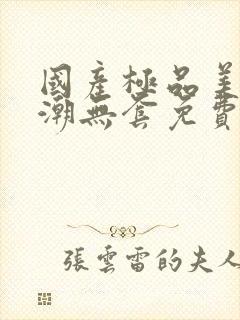 國產極品美
潮無套免費
張雲雷的夫人